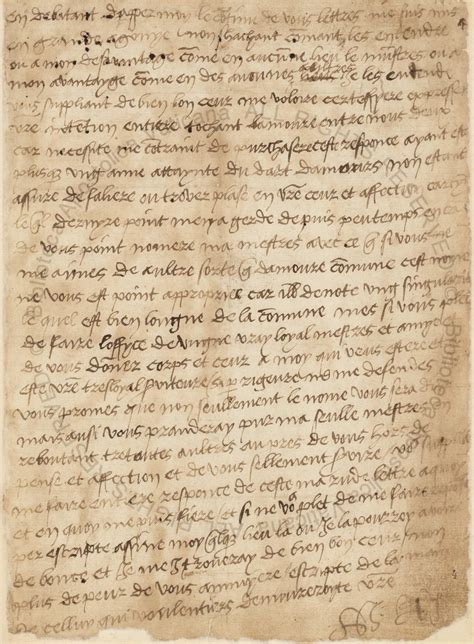 En debatant d'apper moy le contenu de vous lettres me suis mis
en grande agonye non sachant comant les entendre
ou a mon desavantage come en aucune lieu le munstres ou a
mon avantayge come en des aucunes je les entende
vous suppliant de bien bon ceur me voloire certeffyere expresse
vre intention entiere tochant l'amoure entre nous deux
car necessite me contraint de purchaser ceste responce ayant este
plusque ung anne attaynte du dart d'amours non estant
assure de faliere ou trover plase en vre ceur et affection
le dernyre point me a gerde de puis peu temps en ca
de vous point nomere ma mestres avec ce si vous ne
me aimes de aultre sorte d'amoure commune cest nome
ne vous est point approprice car ill denote ung singularite
le quel est bien longne de la comune mes si vous ples
de faire l'offyce de ungne vray loyal mestres et amye
de vous donner corps et ceur a moy qui veus estere et
este vre tresloyal serviteure rigeure ne me defendes
vous promes que non seullement le nome vous sera
mais aussi vous pranderay pur ma seulle mestres
reboutant tretoutes aultres aupres de vous hors de
pense et affection et de vous sellement servire vous
me faire entiere responce de ceste ma rude lettre
et en quoy me puis fiere et si ne vos plet de me faire
per escripte assine moy lieu la ou je la pourroy avoire
de bouce et je me trouveray de bien bon ceur non
plus de peur de vous annuyere escripte de la main
de celluy qui voulentiers demureroyte vre